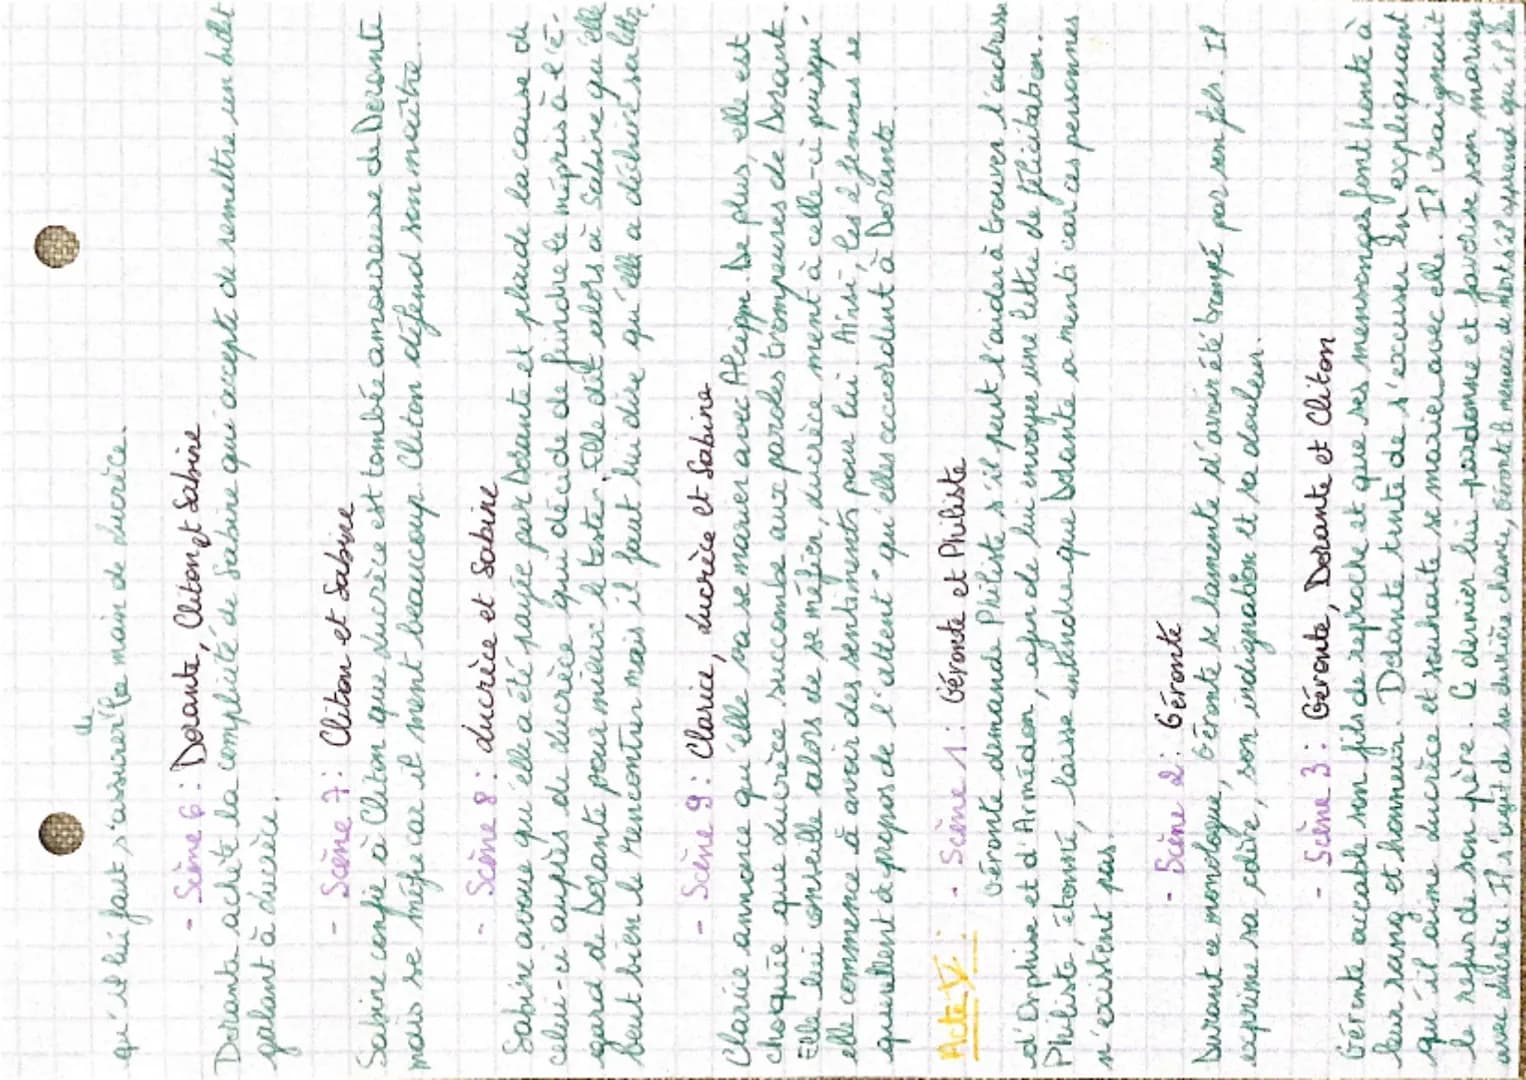 qu'il lui faut s'assurer de la main de Lucrèce.
- Scène 6 : Dorante, Cliton et Sabine
Dorante achète la complicité de Sabine qui accepte de remettre un billet
galant à Lucrèce.
- Scène 7 : Cliton et Sabine
Sabine confie à Cliton que Lucrèce est tombée amoureuse de Dorante
mais se méfie car il ment beaucoup. Cliton défend son maître.
- Scène 8 : Lucrèce et Sabine
Sabine avoue qu'elle a été payée par Dorante et plaide la cause de
celui-ci auprès de Lucrèce qui décide de feindre le mépris à l'é-
gard de Dorante pour mieux le tester. Elle dit alors à Sabine qu'elle
veut bien le rencontrer mais il faut lui dire qu'elle a déchiré sa lettre.
- Scène 9 : Clarice, Lucrèce et Sabine
Clarice annonce qu'elle va se marier avec Alcippe. De plus, elle est
choquée que Lucrèce succombe aux paroles trompeuses de Dorante.
Elle lui conseille alors de se méfier, Lucrèce ment à celle-ci puisqu'
elle commence à avoir des sentiments pour lui. Ainsi, les 2 femmes se
querellent à propos de l'attent° qu'elles accordent à Dorante.
Acte V :
- Scène 1 : Géronte et Philiste
Géronte demande Philiste s'il peut l'aider à trouver l'adresse
d'Orphise et d'Armédon, afin de lui envoyer une lettre de félicitation.
Philiste, étonné, laisse entendre que Dorante a menti car ces personnes
n'existent pas.
- Scène 2 : Géronte
Durant ce monologue, Géronte se lamente d'avoir été trompé par son fils. Il
exprime sa colère, son indignation et sa douleur.
- Scène 3 : Géronte, Dorante et Cliton
Géronte accable son fils de reproche et que ses mensonges font honte à
leur sang et honneur. Dorante tente de s'excuser en expliquant
qu'il aime Lucrèce et souhaite se marier avec elle. Il craignait
le refus de son père. Ce dernier lui pardonne et favorise son mariage
avec Lucrèce. Il s'agit de sa dernière chance, Géronte le menace de mort s'il apprend qu'il